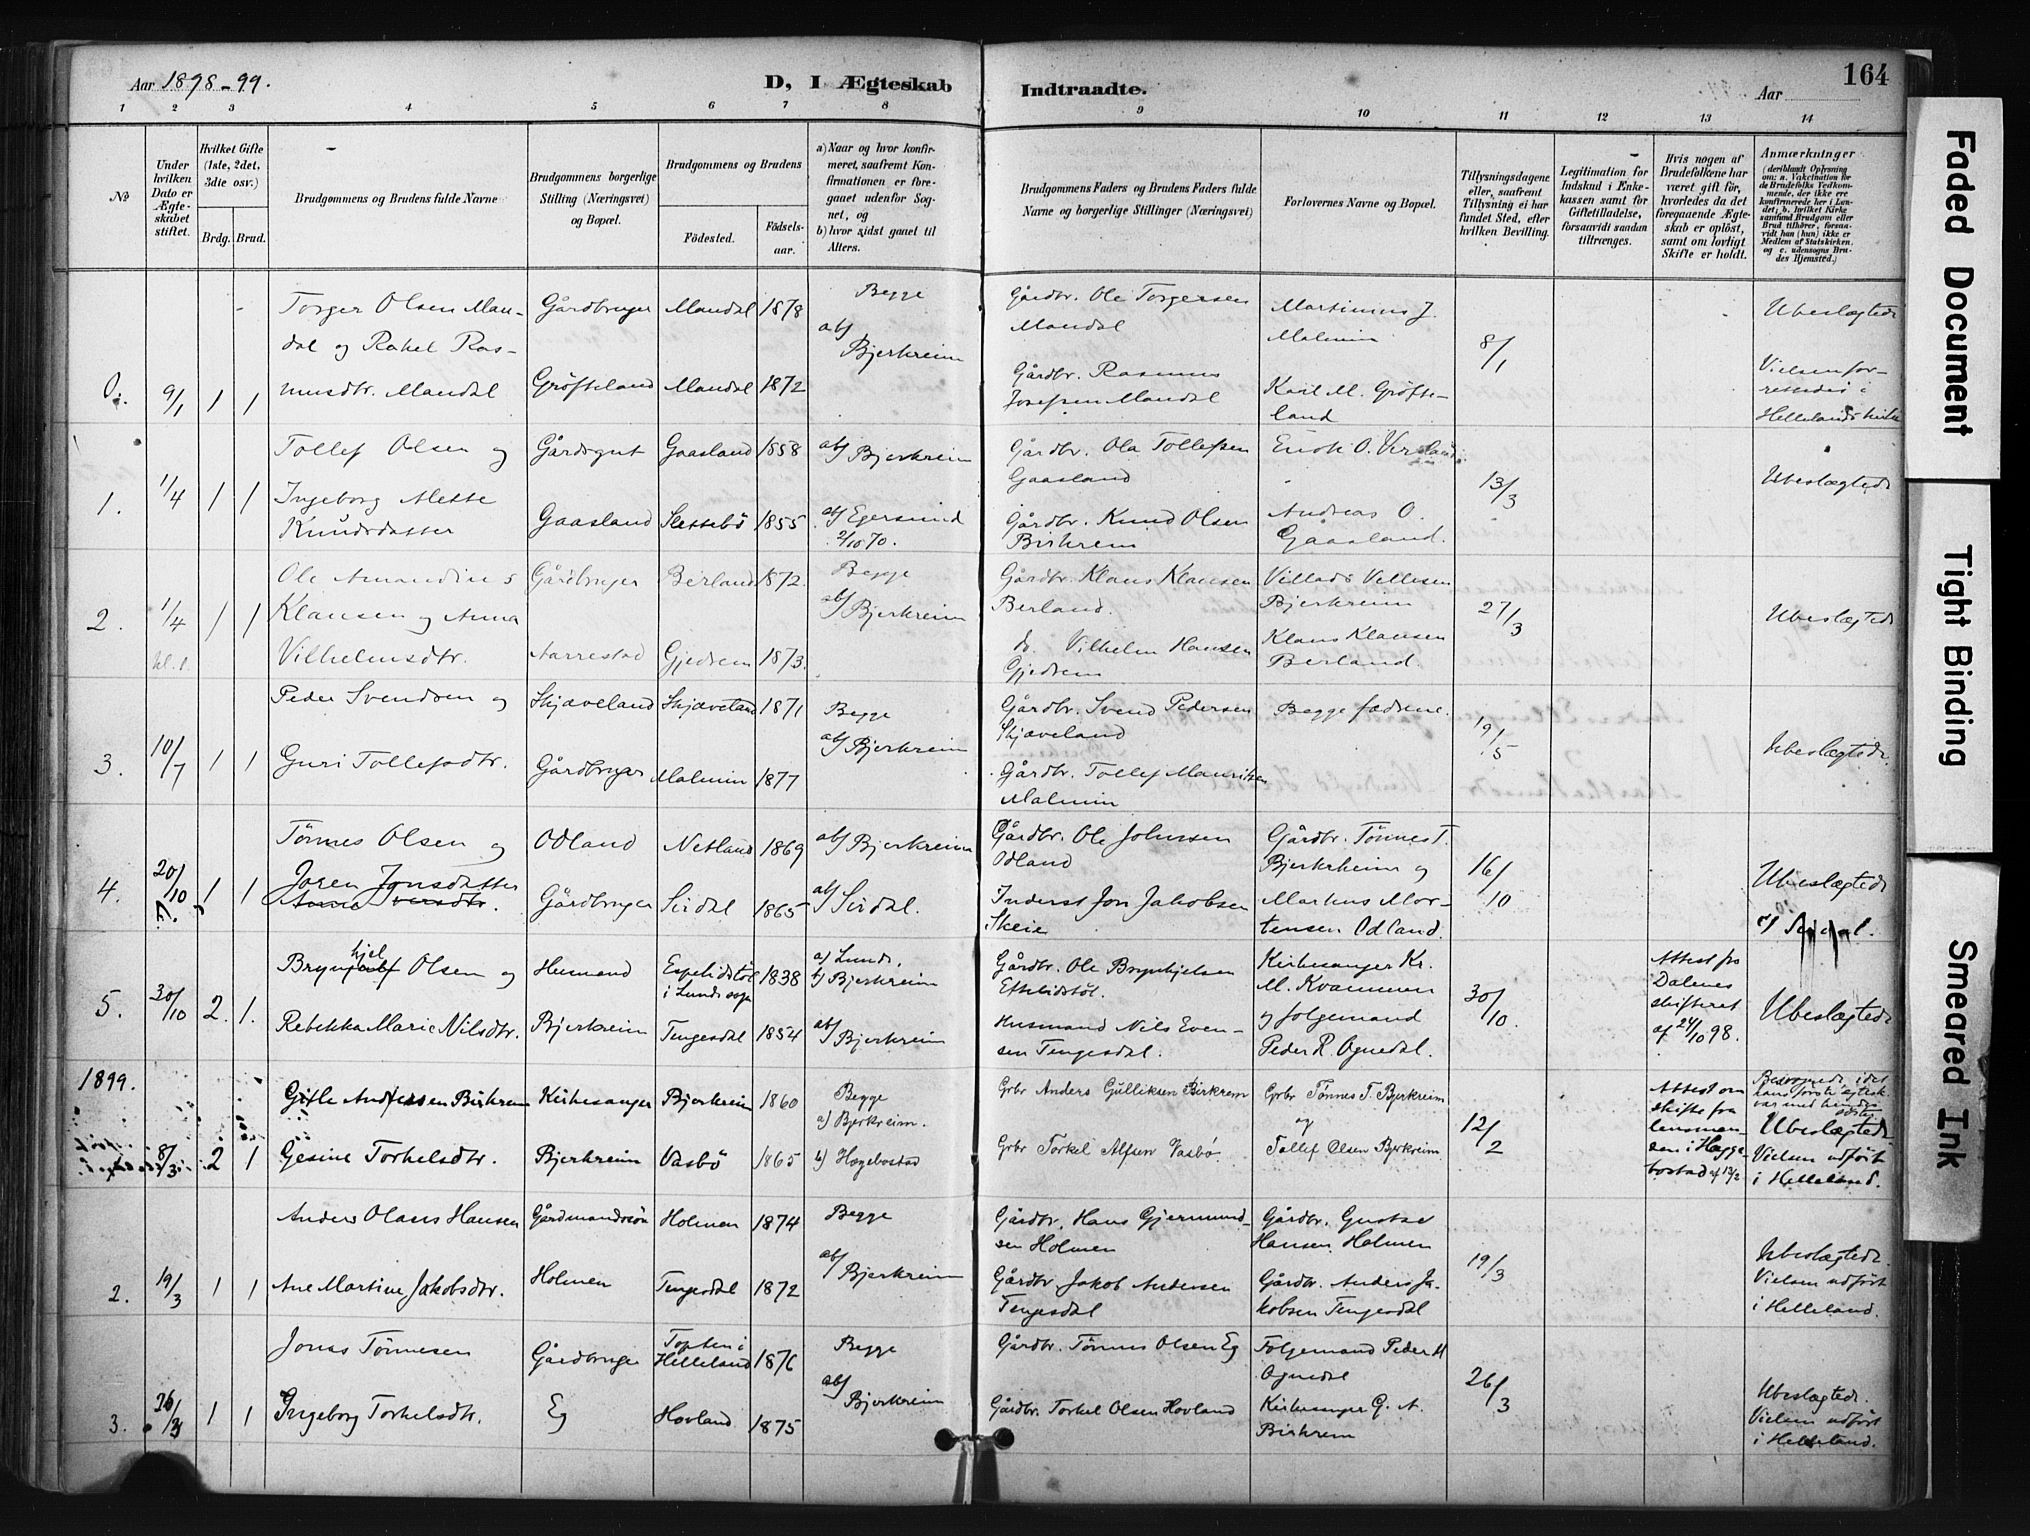 Aar 1898-99.
D, I Ægteskab Indtraadte.
Aar
164
1 2 3 4 5 6 7 8 9 10 11 12 13 14
№
Under hvilken Dato er Ægteskabet stiftet.
Hvilket Gifte (1ste, 2det, 3die osv.)
Brdg. Brud.
Brudgommens og Brudens fulde Navne
Brudgommens borgerlige Stilling (Næringsvei) og Bopæl.
Brudgommens og Brudens
Fødested. Fødsels-aar.
a) Naar og hvor konfirmeret, saafremt Konfirmationen er foregaaet udenfor Sognet, og
b) hvor sidst gaaet til Alters.
Brudgommens Faders og Brudens Faders fulde Navne og borgerlige Stillinger (Næringsvei)
Forlovernes Navne og Bopæl.
Tillysningsdagene eller, saafremt Tillysning ei har fundet Sted, efter hvilken Bevilling.
Legitimation for Indskud i Enkekassen samt for Giftetilladelse, forsaavidt saadan tiltrænges.
Hvis nogen af Brudefolkene har været gift før, hvorledes da det foregaaende Ægteskab er opløst, samt om lovligt Skifte er holdt.
Anmærkninger
(deriblandt Oplysning om: a. Vakcination for de Brudefolks Vedkommende, der ikke ere konfirmerede her i Landet; b. hvilket Kirkesamfund Brudgom eller Brud tilhører, forsaavidt han (hun) ikke er Medlem af Statskirken. og c. udensogns Brudes Hjemsted.)
0. 9/1 1 1
Torger Olsen Man-
dal og Rakel Ras-
musdtr. Mandal
Gårdbruger
Grøfteland
Mandal 1878
Mandal 1872
Begge
ab/ Bjerkreim
Gårdbr. Ole Torgersen
Mandal
Gårdbr. Rasmus
Josefsen Mandal
Martinus J.
Malmin
Karl M. Grøfte-
land
8/1
Ubeslægtede
Vielsen for-
rettedes i
Hellelands kirke
1. 1/4 1 1
Tollef Olsen og
Ingeborg Mette
Knudsdatter
Gårdsgut
Gaasland
Gaasland 1858
Slettebø 1855
ab/ Bjerkreim
ab/ Egersund
2/10 70.
Gårdbr. Ola Tollefsen
Gaasland
Gårdbr. Knud Olsen
Birkrem
Enok O.
Andreas O.
Gåasland.
13/3
Ubeslægtede
2. 1/4 1 1
kl. 1.
Ole Amandius
Klausen og Anna
Vilhelmsdtr.
Gårdbruger
Aarrestad
Berland 1872.
Gjedrem 1873.
Begge
ab/ Bjerkreim
Gårdbr. Klaus Klausen
Berland.
do. Vilhelm Hansen
Gjedrem
Villads Villesen
Bjerkreim
Klaus Klausen
Berland.
27/3
Ubeslægtede
3. 10/7 1 1
Peder Svendsen og
Guri Tollefsdtr.
Skjæveland
Gårdbruger
Skjæveland 1871
Malmin 1877
Begge
ab/ Bjerkreim
Gårdbr. Svend Pedersen
Skjæveland
Gårdbr. Tollef Mauritsen
Malmin
Begge fædrene.
19/5
Ubeslægtede.
4. 20/10 1 1
Tønnes Olsen og
Joren Jonsdatter
Anne Iversdtr.
Odland
Gårdbruger
Netland 1869
Sirdal 1865
ab/ Bjerkreim
ab/ Sirdal.
Gårdbr. Ole Johnsen
Odland
Inderst Jon Jakobsen
Skeie
Gårdbr. Tønnes T.
Bjerkrheim og
Markus Mor-
tensen Odland.
16/10
Ubeslægtede
af Sirdal.
5. 30/10 2. 1.
hjel
Brynjulf Olsen og
Rebekka Marie Nilsdtr.
Husmand
Bjerkreim
Espelidstøl
i Lunds sogn 1838
Tengesdal 1854
a) Lund.
b) Bjerkreim
ab/ Bjerkreim
Gårdbr. Ole Brynhjelsen
Ettelidstøl.
Husmand Nils Even-
sen Tengesdal.
Kirkesanger Kr.
M. Kvammen
og følgemand
Peder R. Ognedal.
30/10.
Attest fra
Dalenes
skifteret
af 24/10 98.
Ubeslægtede
1899.
8/3 2 1
Gitle Andersen Birkrem
Gesine Torkelsdtr.
Kirkesanger
Bjerkreim
Bjerkreim 1860
Vasbø 1865
Begge
a) Bjerkreim.
b) Hægebostad
Grbr Anders Gulliksen Birkrem
Grbr Torkel Alfsen Vasbø.
Grbr Tønnes T. Bjerkreim
og
Tollef Olsen Bjerkreim
12/2
Attest om
skifte fra
lensman-
den i Hægge-
bostad af 13/2
Ubeslægtede
Vielsen udført
i Helleland.
2. 19/3 1 1
Anders Olaus Hansen
Ane Martine Jakobsdtr.
Gårdmandssøn
Holmen
Holmen 1874
Tengesdal 1872
Begge
ab/ Bjerkreim
Gårdbr. Hans Gjermund-
sen Holmen
Gårdbr. Jakob Andersen
Tengesdal
Gårdbr. Gustav
Hansen Holmen
Gårdbr. Anders Ja-
kobsen Tengesdal
19/3
Ubeslægtede.
Vielsen udført
i Helleland.
3. 26/3 1 1
Jonas Tønnesen
Ingeborg Torkelsdtr.
Gårdbruger
Eg
Topten i
Helleland 1876
Hovland 1875
Begge
ab/ Bjerkreim
Gårdbr. Tønnes Olsen Eg
Gårdbr. Torkel Olsen Hovland
Følgemand Peder R
Ognedal
Kirkesanger G. A.
Birkrem
26/3
Ubeslægtede.
Vielsen udført
i Helleland.
Faded Document
Tight Binding
Smeared Ink